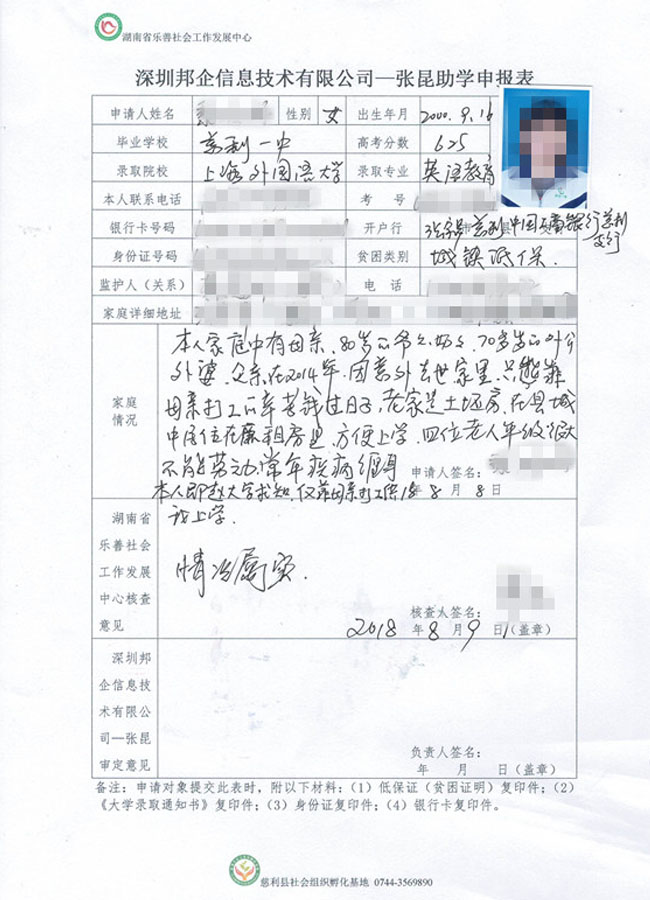 湖南省乐善社会工作发展中心
深圳邦企信息技术有限公司—张昆助学申报表
申请人姓名 性别 女 出生年月 2000.9.16
毕业学校 慈利一中 高考分数 625
录取院校 上海外国语大学 录取专业 英语教育
本人联系电话 考 号
银行卡号码 开户行 张家界慈利县中国农业银行慈利支行
身份证号码 贫困类别 城镇低保.
监护人（关系） 电 话
家庭详细地址
家庭
情况
本人家庭中有母亲,80岁的爷爷奶奶,70岁的外公
外婆.父亲在2014年.因意外去世家里.只能靠
母亲打工的辛苦钱过日子,老家是土坯房.在县城
中居住在廉租房里.方便上学.四位老人年级很大
不能劳动,常年疾病缠身 申请人签名：
本人即赴大学求知,仅靠母亲打工供 18年 8 月 8 日
我上学.
湖南省
乐善社会
工作发展
中心核查
意见
情况属实.
核查人签名：
2018 年 8 月 9 日（盖章）
深圳邦
企信息技
术有限公
司—张昆
审定意见
负责人签名：
年 月 日（盖章）
备注：申请对象提交此表时，附以下材料：（1）低保证（贫困证明）复印件；（2）
《大学录取通知书》复印件；（3）身份证复印件；（4）银行卡复印件。
慈利县社会组织孵化基地 0744-3569890